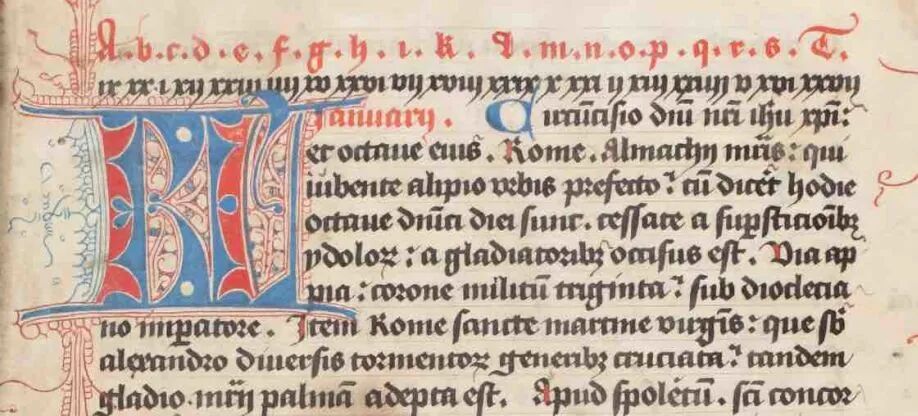 A.b.c.d.e.f.g.h.i.k.l.m.n.o.p.q.r.s.T.
ix xx i xii xxiii iiii xv xxvi vii xviii xxix x xxi ii xiii xxiiii v xvi xxvii
KL Januarij. Circūcisio dn̄i nr̄i ihu xp̄i:
et octaue eius. Rome. Almachij mr̄is: qui
iubente alipio vrbis prefecto: cū dicēt hodie
octaue dn̄ici diei sunt. cessate a suꝑsticiōibꝫ
ydoloꝝ: a gladiatoribꝫ occisus est. Via ap
pia: corone militū triginta: sub dioclecia
no imꝑatore. Item Rome sancte martine virgīs: que sb̄
alexandro diuersis tormentoꝝ generibꝫ cruciata: tandem
gladio mr̄ij palmā adepta est. Apud spoletū. sc̄i concor